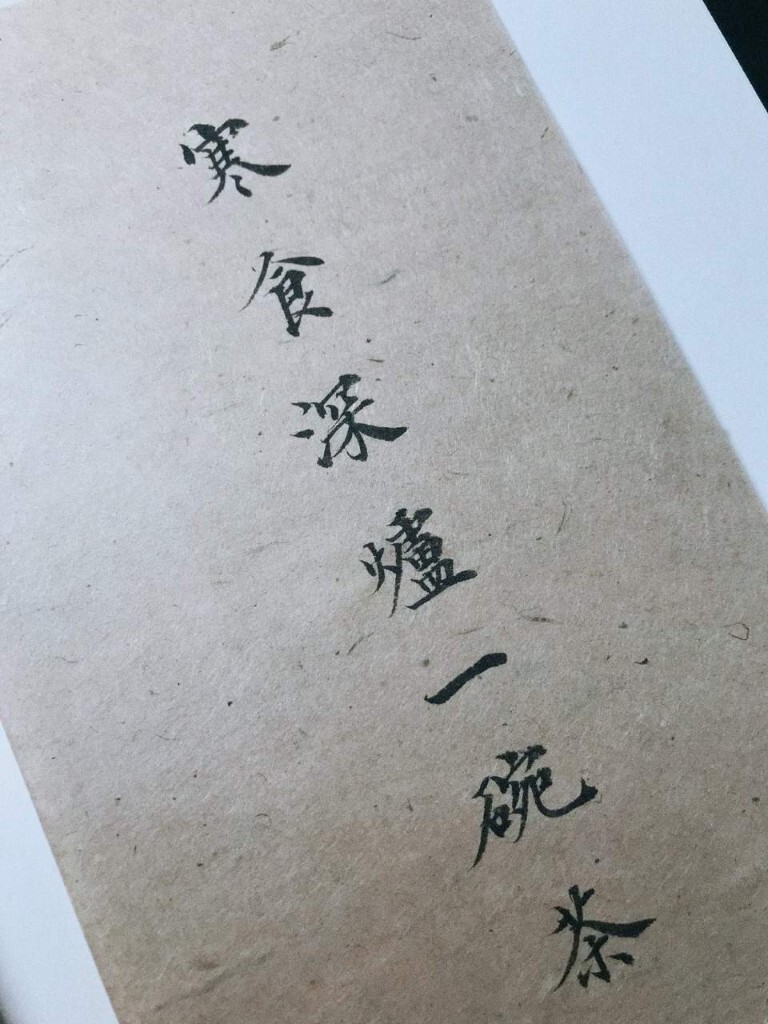 寒食深爐一碗茶